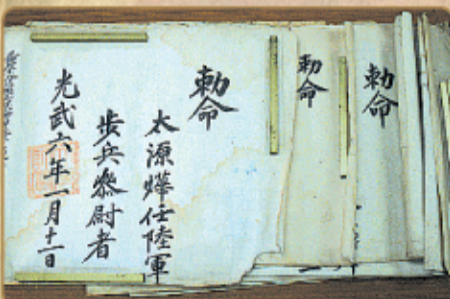 勅命
勅命
勅命
太源燁任陸軍
步兵叅尉者
光武六年一月十一日